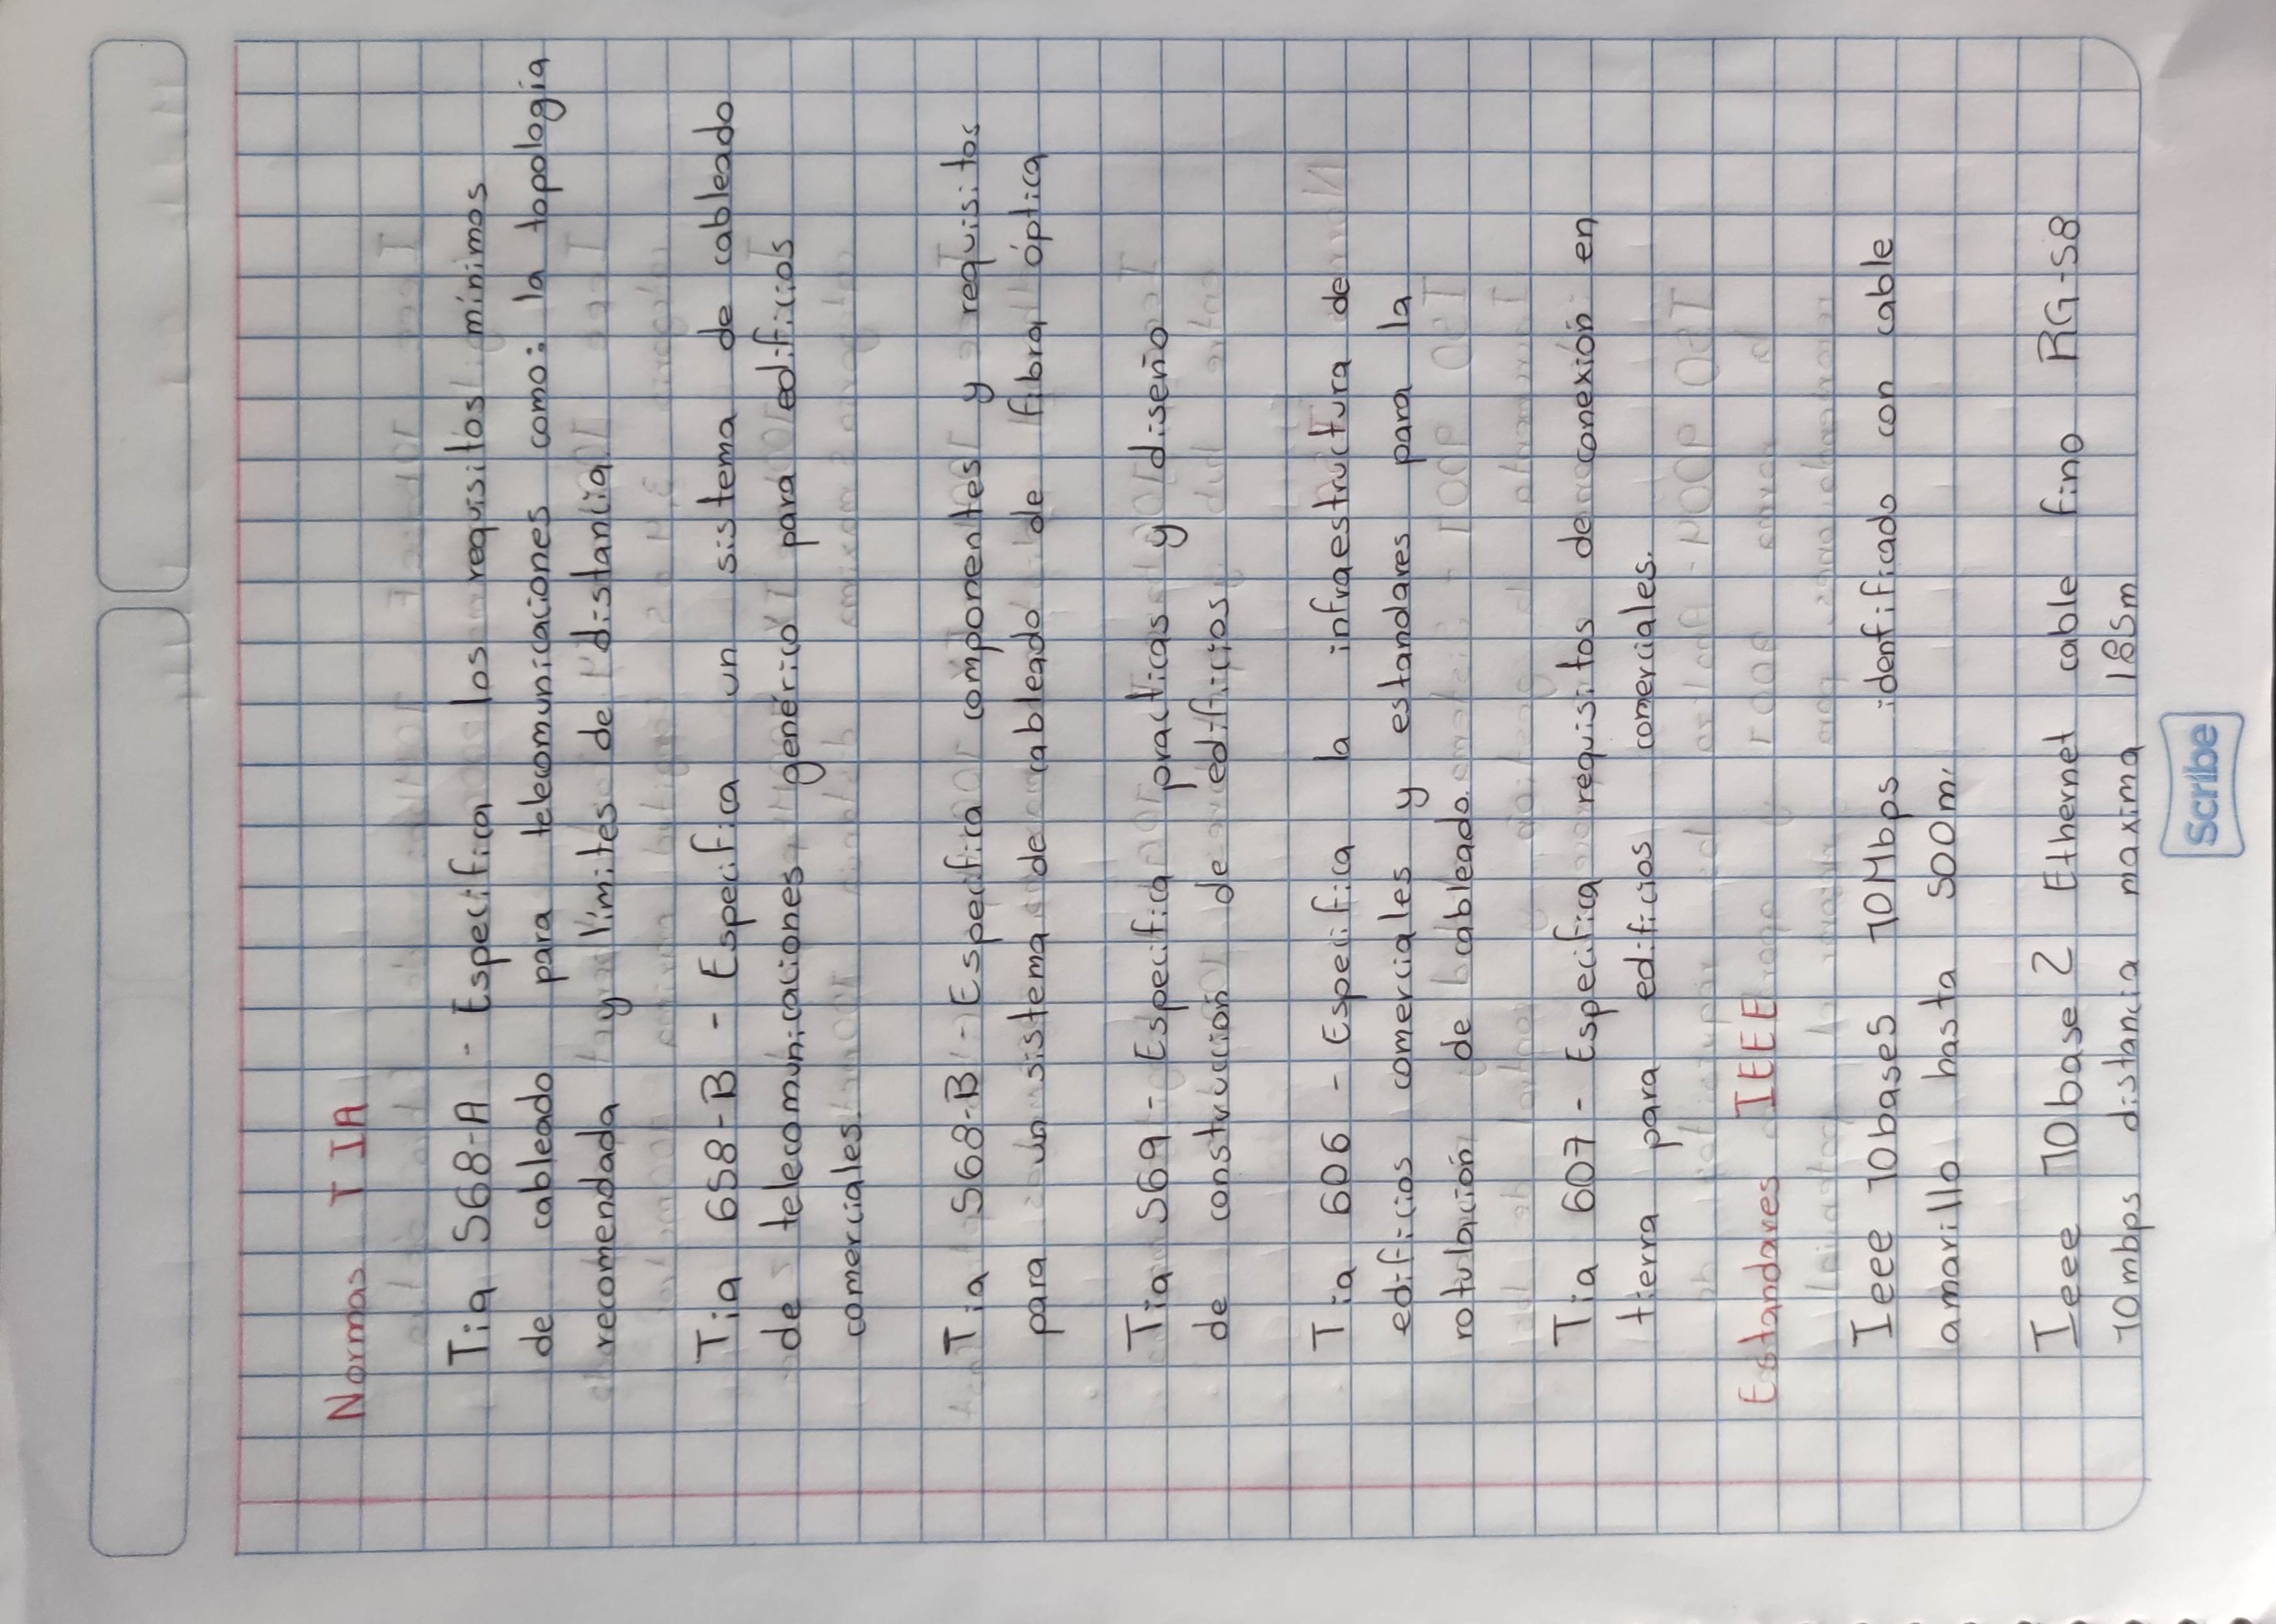 Normas TIA
Tia 568-A - Especifica los requisitos mínimos
de cableado para telecomunicaciones como: la topología
recomendada y límites de distancia
Tia 658-B - Especifica un sistema de cableado
de telecomunicaciones genérico para edificios
comerciales.
Tia 568-B - Especifica componentes y requisitos
para un sistema de cableado de fibra óptica
Tia 569 - Especifica practicas y diseño
de construccion de edificios
Tia 606 - Especifica la infraestructura de
edificios comerciales y estandares para la
rotulación de cableado.
Tia 607 - Especifica requisitos de conexión en
tierra para edificios comerciales.
Estandares IEEE
Ieee 10base5 10Mbps idenfificado con cable
amarillo hasta 500m.
Ieee 10base2 Ethernet cable fino RG-58
10mbps distancia maxima 185m
Scribe